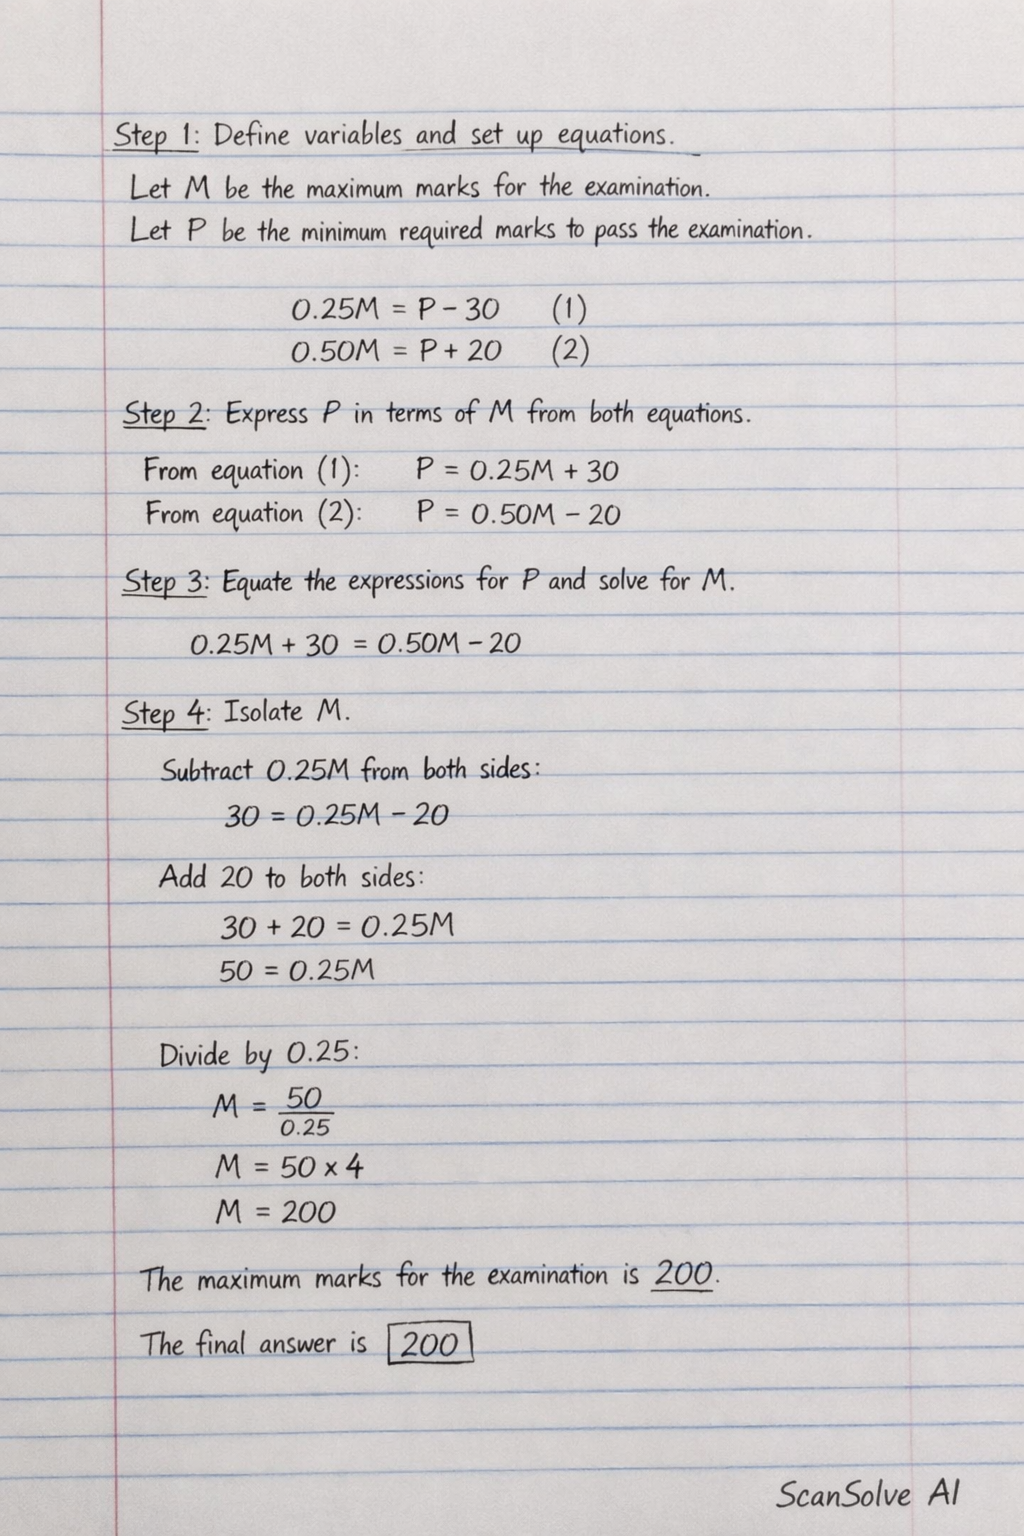 Step 1: Define variables and set up equations.
Let M be the maximum marks for the examination.
Let P be the minimum required marks to pass the examination.
0.25M = P - 30 (1)
0.50M = P + 20 (2)
Step 2: Express P in terms of M from both equations.
From equation (1): P = 0.25M + 30
From equation (2): P = 0.50M - 20
Step 3: Equate the expressions for P and solve for M.
0.25M + 30 = 0.50M - 20
Step 4: Isolate M.
Subtract 0.25M from both sides:
30 = 0.25M - 20
Add 20 to both sides:
30 + 20 = 0.25M
50 = 0.25M
Divide by 0.25:
M = 50/0.25
M = 50 × 4
M = 200
The maximum marks for the examination is 200.
The final answer is 200
ScanSolve AI